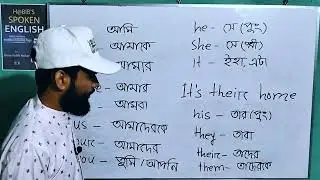 HABIB'S
SPOKEN
ENGLISH
আমি
আমাকে
আমার
আমার
আমরা
us - আমাদেরকে
our - আমাদের
you - তুমি / আপনি
he - সে (পুং)
She - সে (স্ত্রী)
It - ইহা, এটা
It's their home
his - তার (পুং)
they - তারা
their - তাদের
them - তাদেরকে